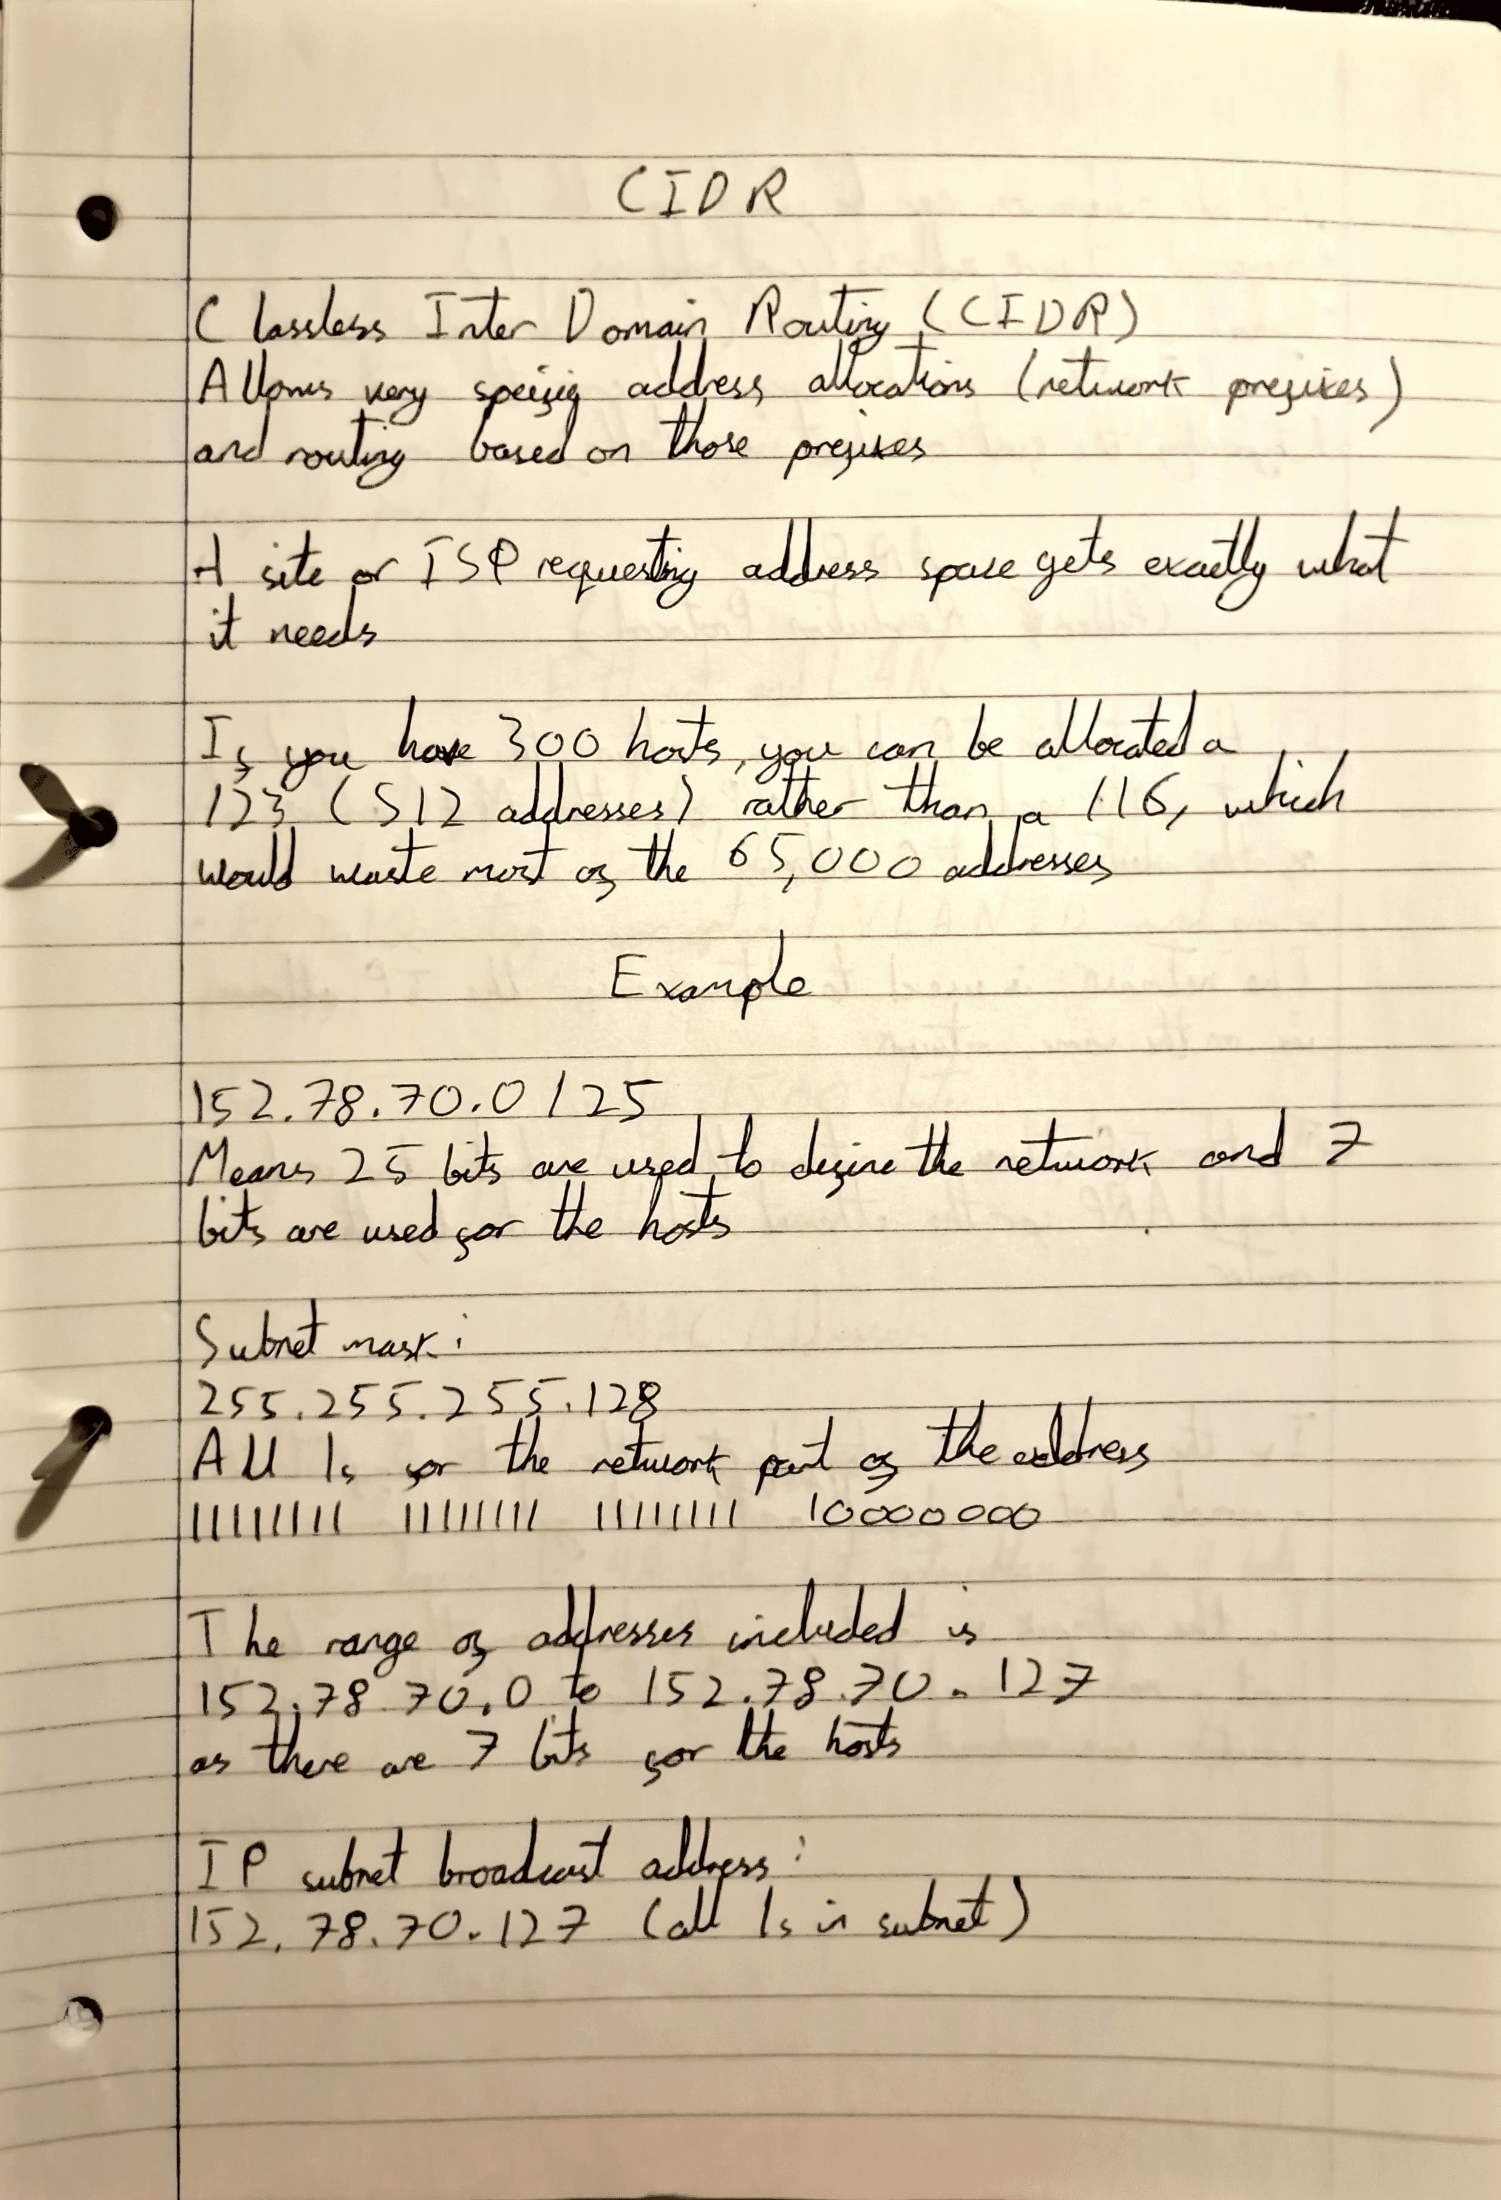 CIDR
Classless Inter Domain Routing (CIDR)
Allows very specific address allocations (network prefixes)
and routing based on those prefixes
A site or ISP requesting address space gets exactly what
it needs
If you have 300 hosts, you can be allocated a
/23 (512 addresses) rather than a /16, which
would waste most of the 65,000 addresses
Example
152.78.70.0/25
Means 25 bits are used to define the network and 7
bits are used for the hosts
Subnet mask:
255.255.255.128
All 1s for the network part of the address
11111111 11111111 11111111 10000000
The range of addresses included is
152.78.70.0 to 152.78.70.127
as there are 7 bits for the hosts
IP subnet broadcast address:
152.78.70.127 (all 1s in subnet)